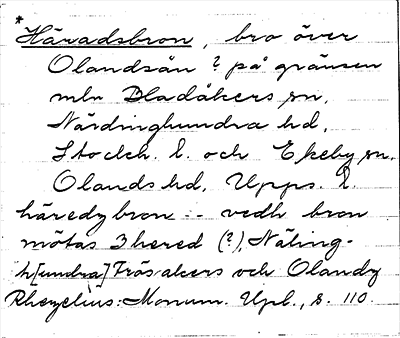 *
Häradsbron, bro över
Olandsån ? på gränsen
mln Bladåkers sn,
Närdinghundra hd,
Stockh. l. och Ekeby sn,
Olands hd, Upps. l.
häredzbron :- vedh bron
mötas 3 hered (?), Näling-
h[undra] Frösakers och Olandz
Rhezelius: Monum. Upl., s. 110.